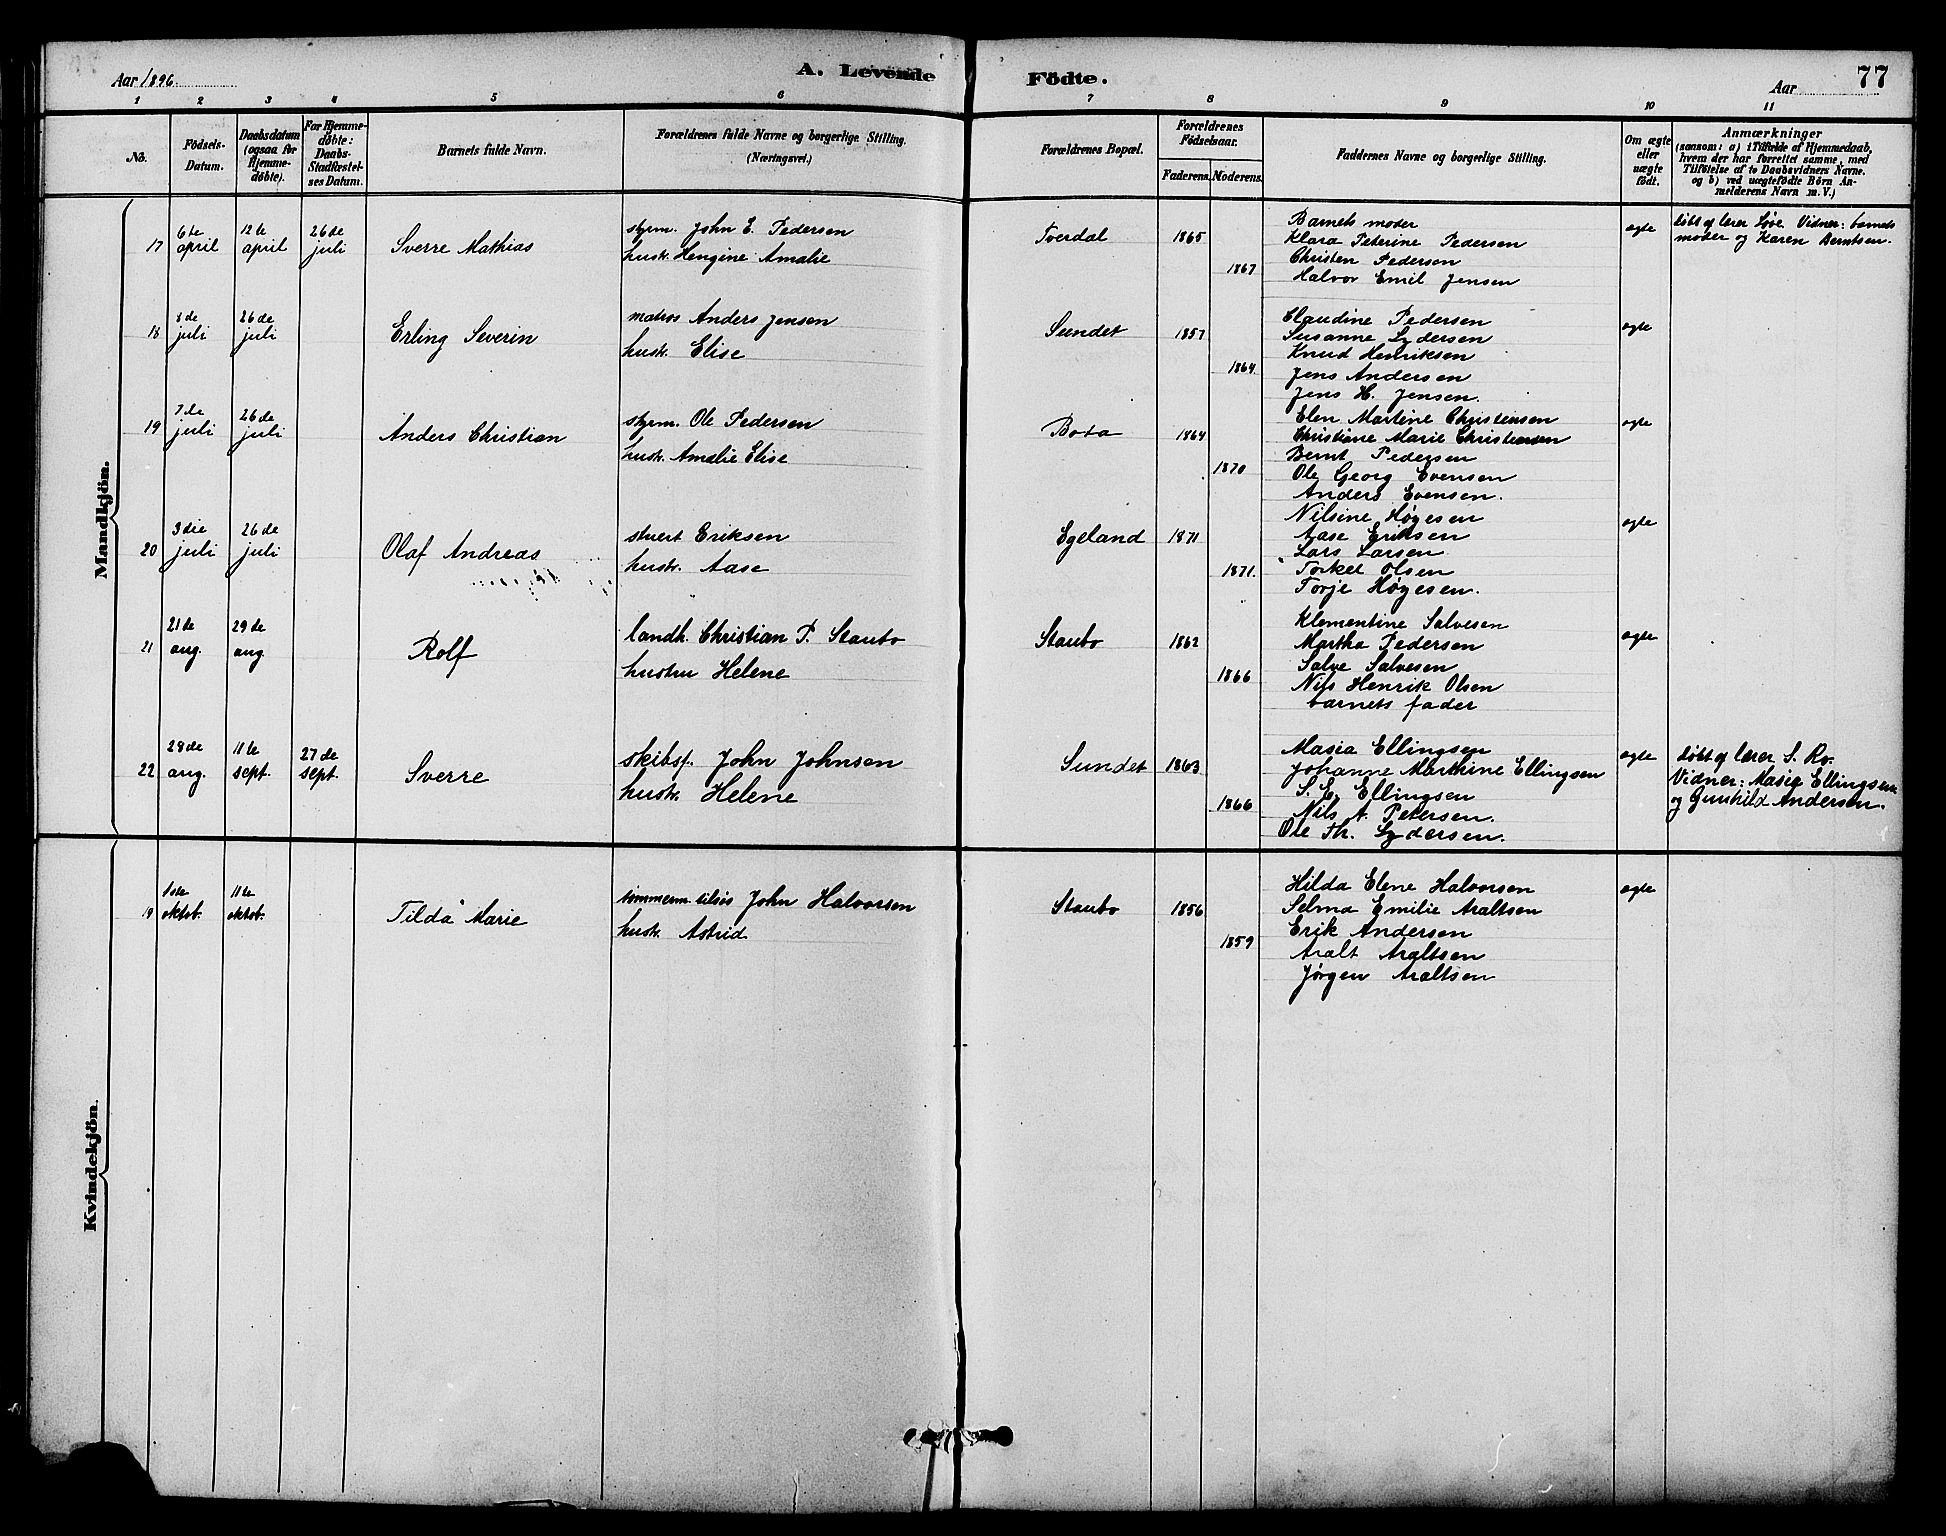 Aar 1896.
A. Levende Födte.
Aar 77
1 2 3 4 5 6 7 8 9 10 11
No.
Födsels-Datum.
Daabsdatum (ogsaa for Hjemme-döbte).
For Hjemme-döbte: Daabs-Stadfæstel-ses Datum.
Barnets fulde Navn.
Forældrenes fulde Navne og borgerlige Stilling. (Næringsvei.)
Forældrenes Bopæl.
Forældrenes Födselsaar.
Faderens. Moderens.
Faddernes Navne og borgerlige Stilling.
Om ægte eller uægte födt.
Anmærkninger
(saasom: a) i Tilfælde af Hjemmedaab, hvem der har forrettet samme, med Tilföielse af to Daabsvidners Navne. og b) ved uægtefödte Börn An-melderens Navn m. V.)
Mandkjön.
17 6te april 12te april 26de juli
Sverre Mathias
styrm. John E. Pedersen
hustr. Hengine Amalie
Tverdal 1865 1867
Barnets moder
Klara Peterine Pedersen
Christen Pedersen
Halvor Emil Jensen
ægte
döbt af lærer Løve. Vidner: barnets
moder og Karen Berntsen.
18 juli 26de juli
Erling Severin
matros Anders Jensen
hustr. Elise
Sundet 1857 1864
Claudine Pedersen
Susanne Lydersen
Knud Henriksen
Jens Andersen
Jens H. Jensen.
ægte
19 7de juli 26de juli
Anders Christian
styrm. Ole Pedersen
hustr. Amalie Elise
Bota 1864 1870
Elen Martine Christensen
Christiane Marie Christensen
Bernt Pedersen
Ole Georg Evensen
Anders Evensen.
ægte
20 3die juli 26de juli
Olaf Andreas
stuert Eriksen
hustr. Aase
Egeland 1871 1871.
Nilsine Høgesen
Aase Eriksen
Lars Larsen
Torkel Olsen
Torje Høgesen.
ægte
21 21de aug. 29de aug.
Rolf
landh. Christian P. Staubo
hustru Helene
Staubo 1862 1866
Klementine Salvesen
Martha Pedersen
Salve Salvesen
Nils Henrik Olsen
barnets fader
ægte
22 28de aug. 11te sept. 27de sept.
Sverre
skibsf. John Johnsen
hustr. Helene
Sundet 1863 1866
Masia Ellingsen
Johanne Marthine Ellingsen
S. E. Ellingsen
Nils A. Petersen.
Ole Th. Lydersen.
ægte
döbt af lærer S. Ro.
Vidner: Masia Ellingsen
og Gunhild Andersen.
Kvindekjön.
19 1ste oktob. 11te oktob.
Tilda Marie
tömmerm. tilsös John Halvorsen
hustr. Astrid
Staubo 1856 1859
Hilda Elene Halvorsen
Selma Emilie Araltsen
Erik Andersen
Aralt Araltsen
Jørgen Araltsen
ægte